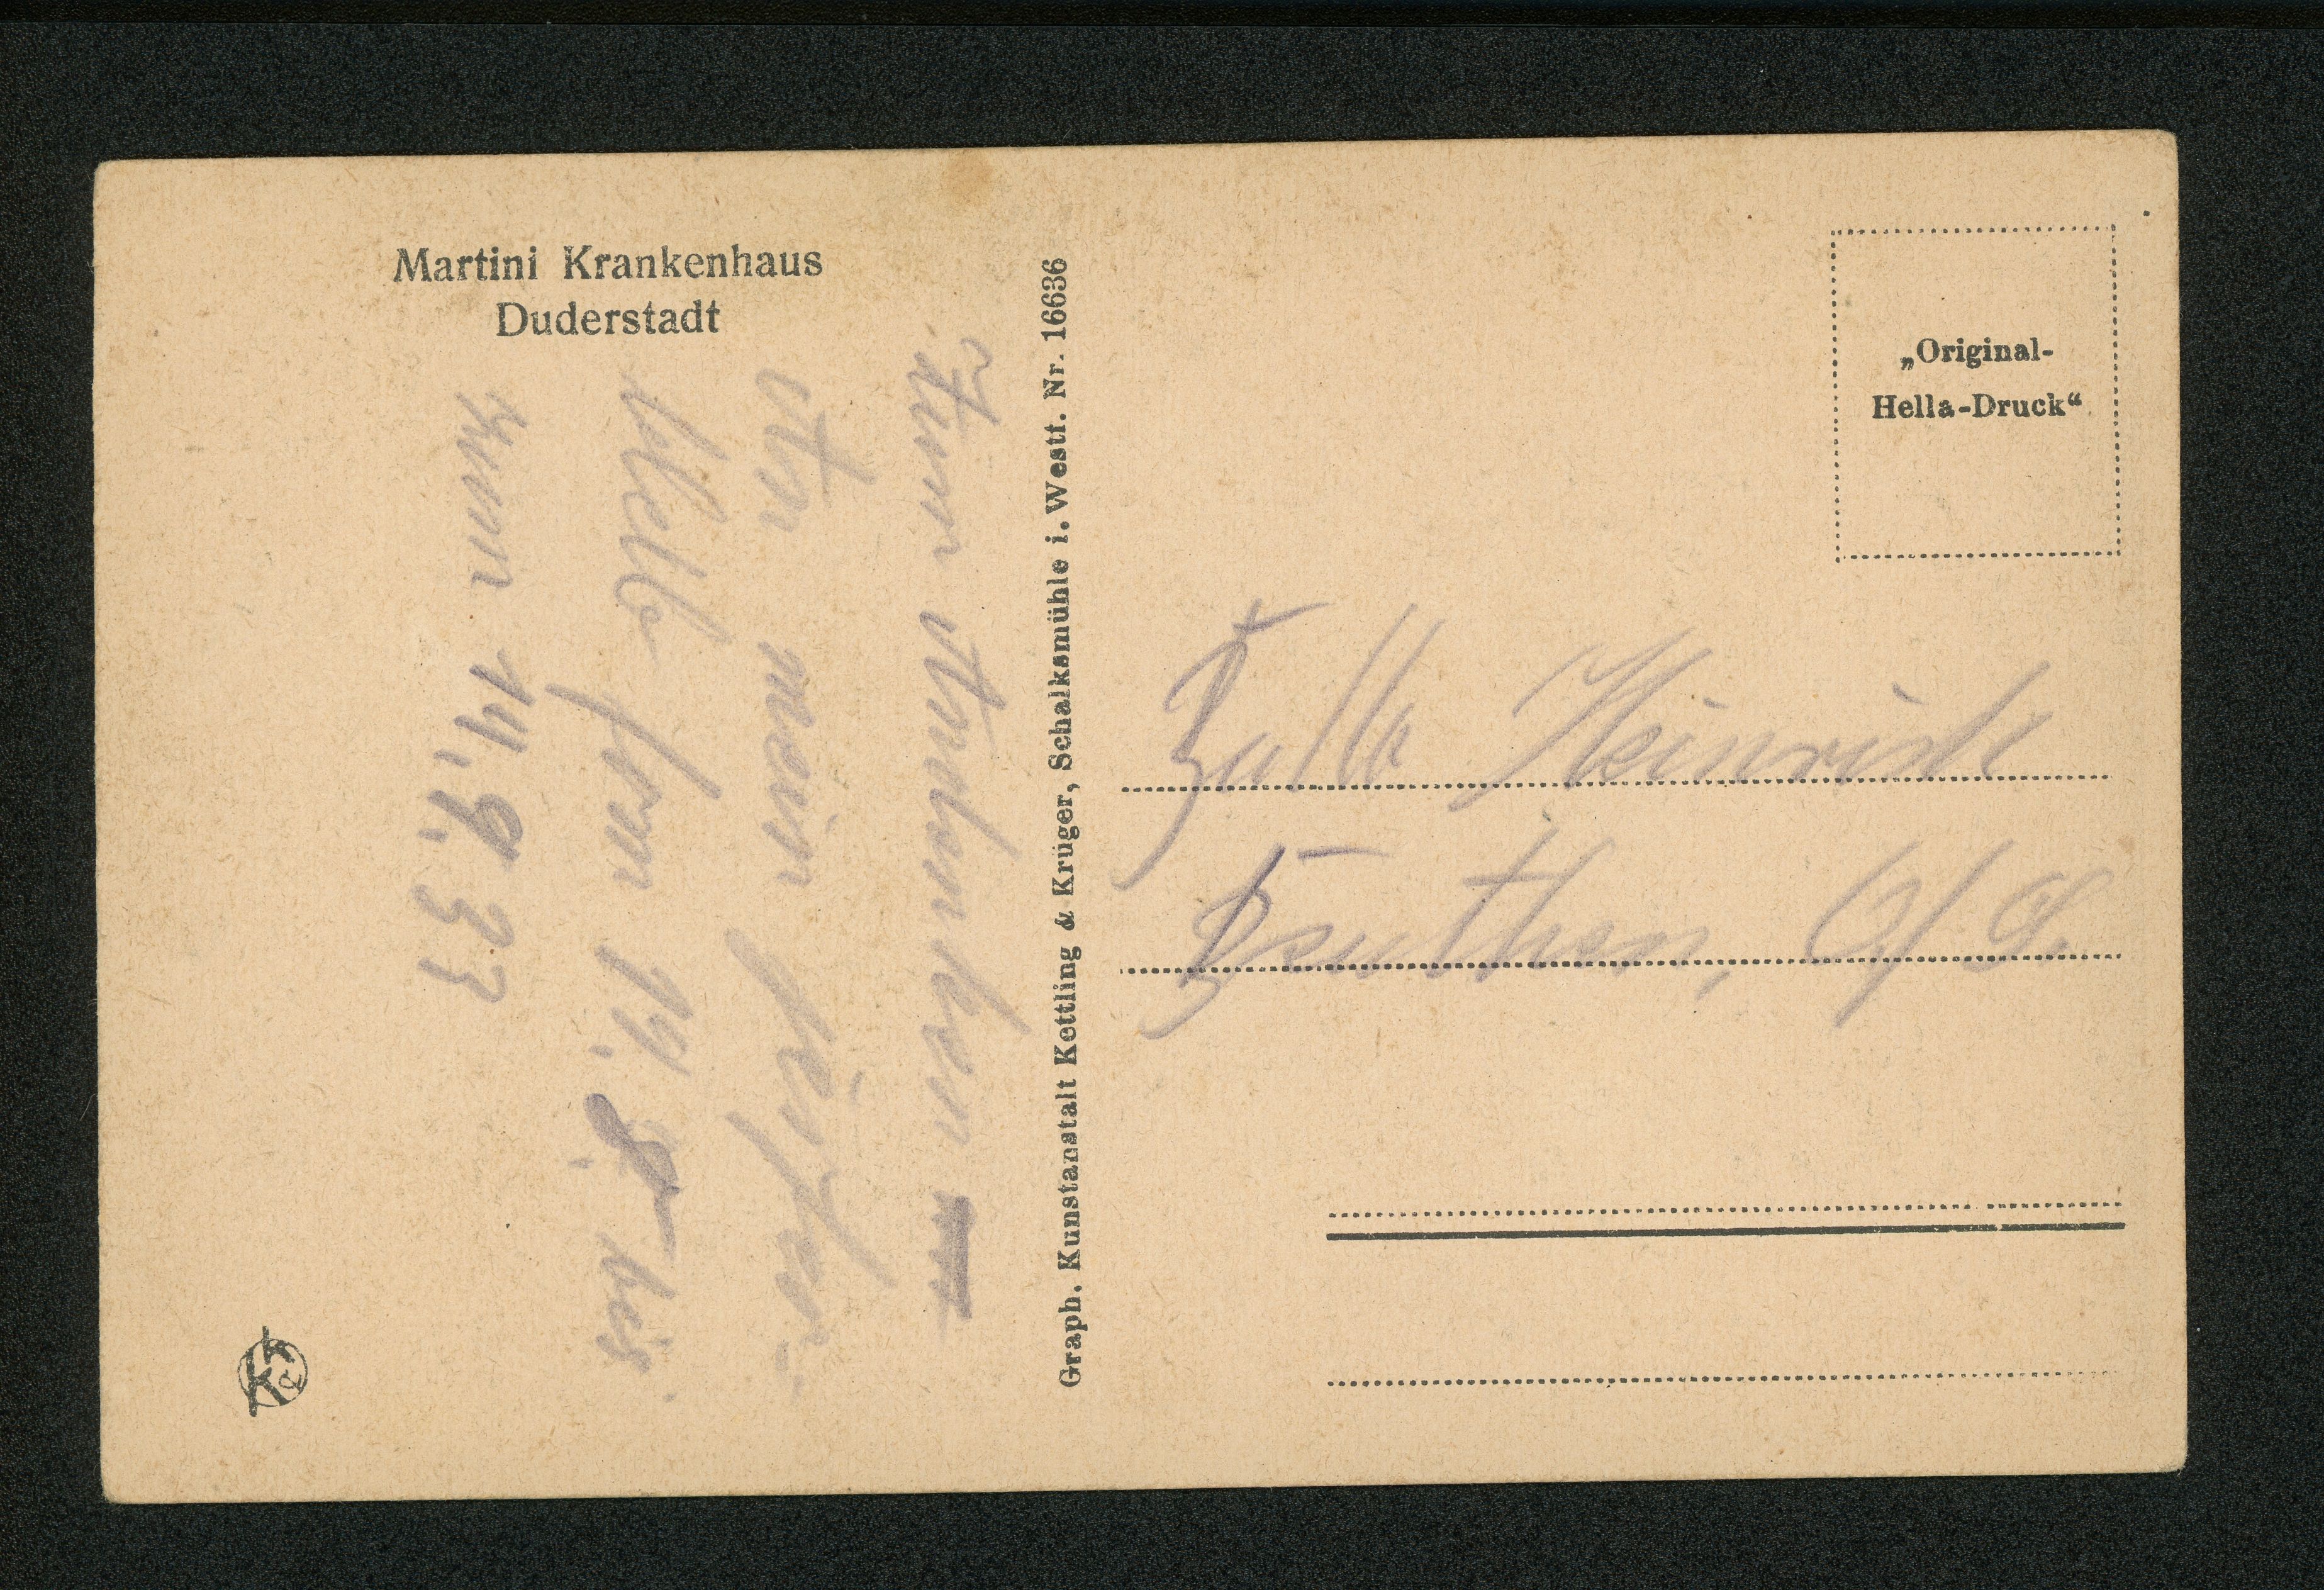 Martini Krankenhaus
Duderstadt
Zum Andenken
An mein
vom 14. 8. bis
zum 14. 9. 33
Graph. Kunstanstalt Kettling & Krüger, Schalksmühle i. Westf. Nr. 16636
„Original-
Hella-Druck“
Heinrich
Beuthen, O/S.